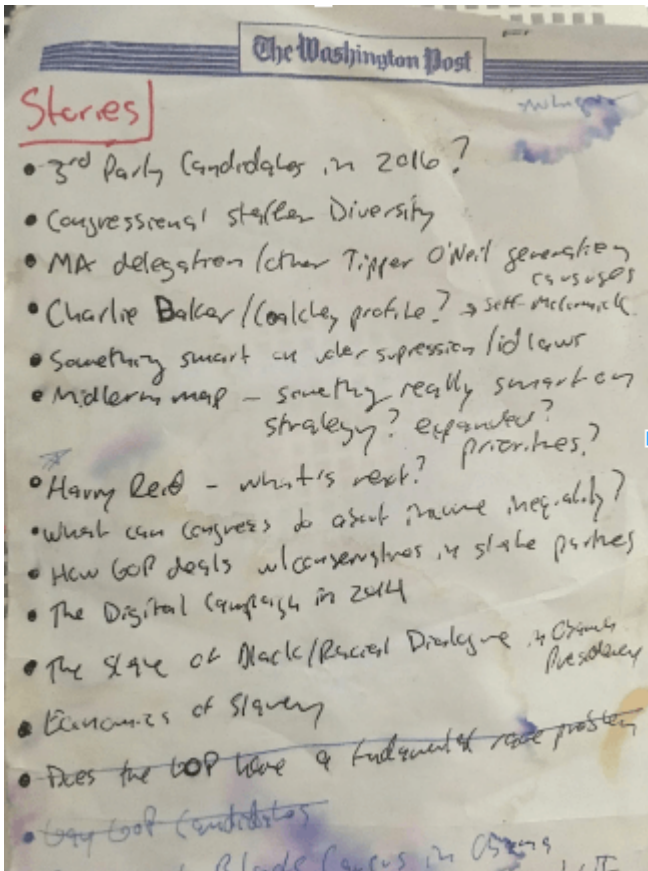 The Washington Post
Stories
• 3rd Party Candidates in 2016?
• Congressional staffer Diversity
• MA delegation / other Tipper O'Neil generation
• Charlie Baker / Coakley profile? →
• Something smart on voter supression / id laws
• Midterm map - somethg really smart on
strategy? expanded?
priorities?
• Harry Reid - what's next?
• what can congress do about income inequality?
• How GOP deals w/ conservatives in state parties
• The Digital Campaign in 2014
• The State of Black/Racial Dialogue in Obama
Presidency
• Economics of Slavery
• Does the GOP have a fundamental race problem
• Gay GOP Candidates
Caucus in Obama